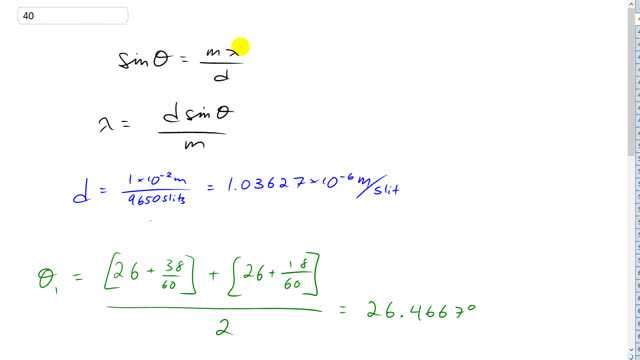 40
sinθ = mλ/d
λ = d sinθ/m
d = 1×10⁻² m/9650 slits = 1.03627×10⁻⁶ m/slit
θ₁ = ([26 + 38/60] + [26 + 18/60])/2 = 26.4667°